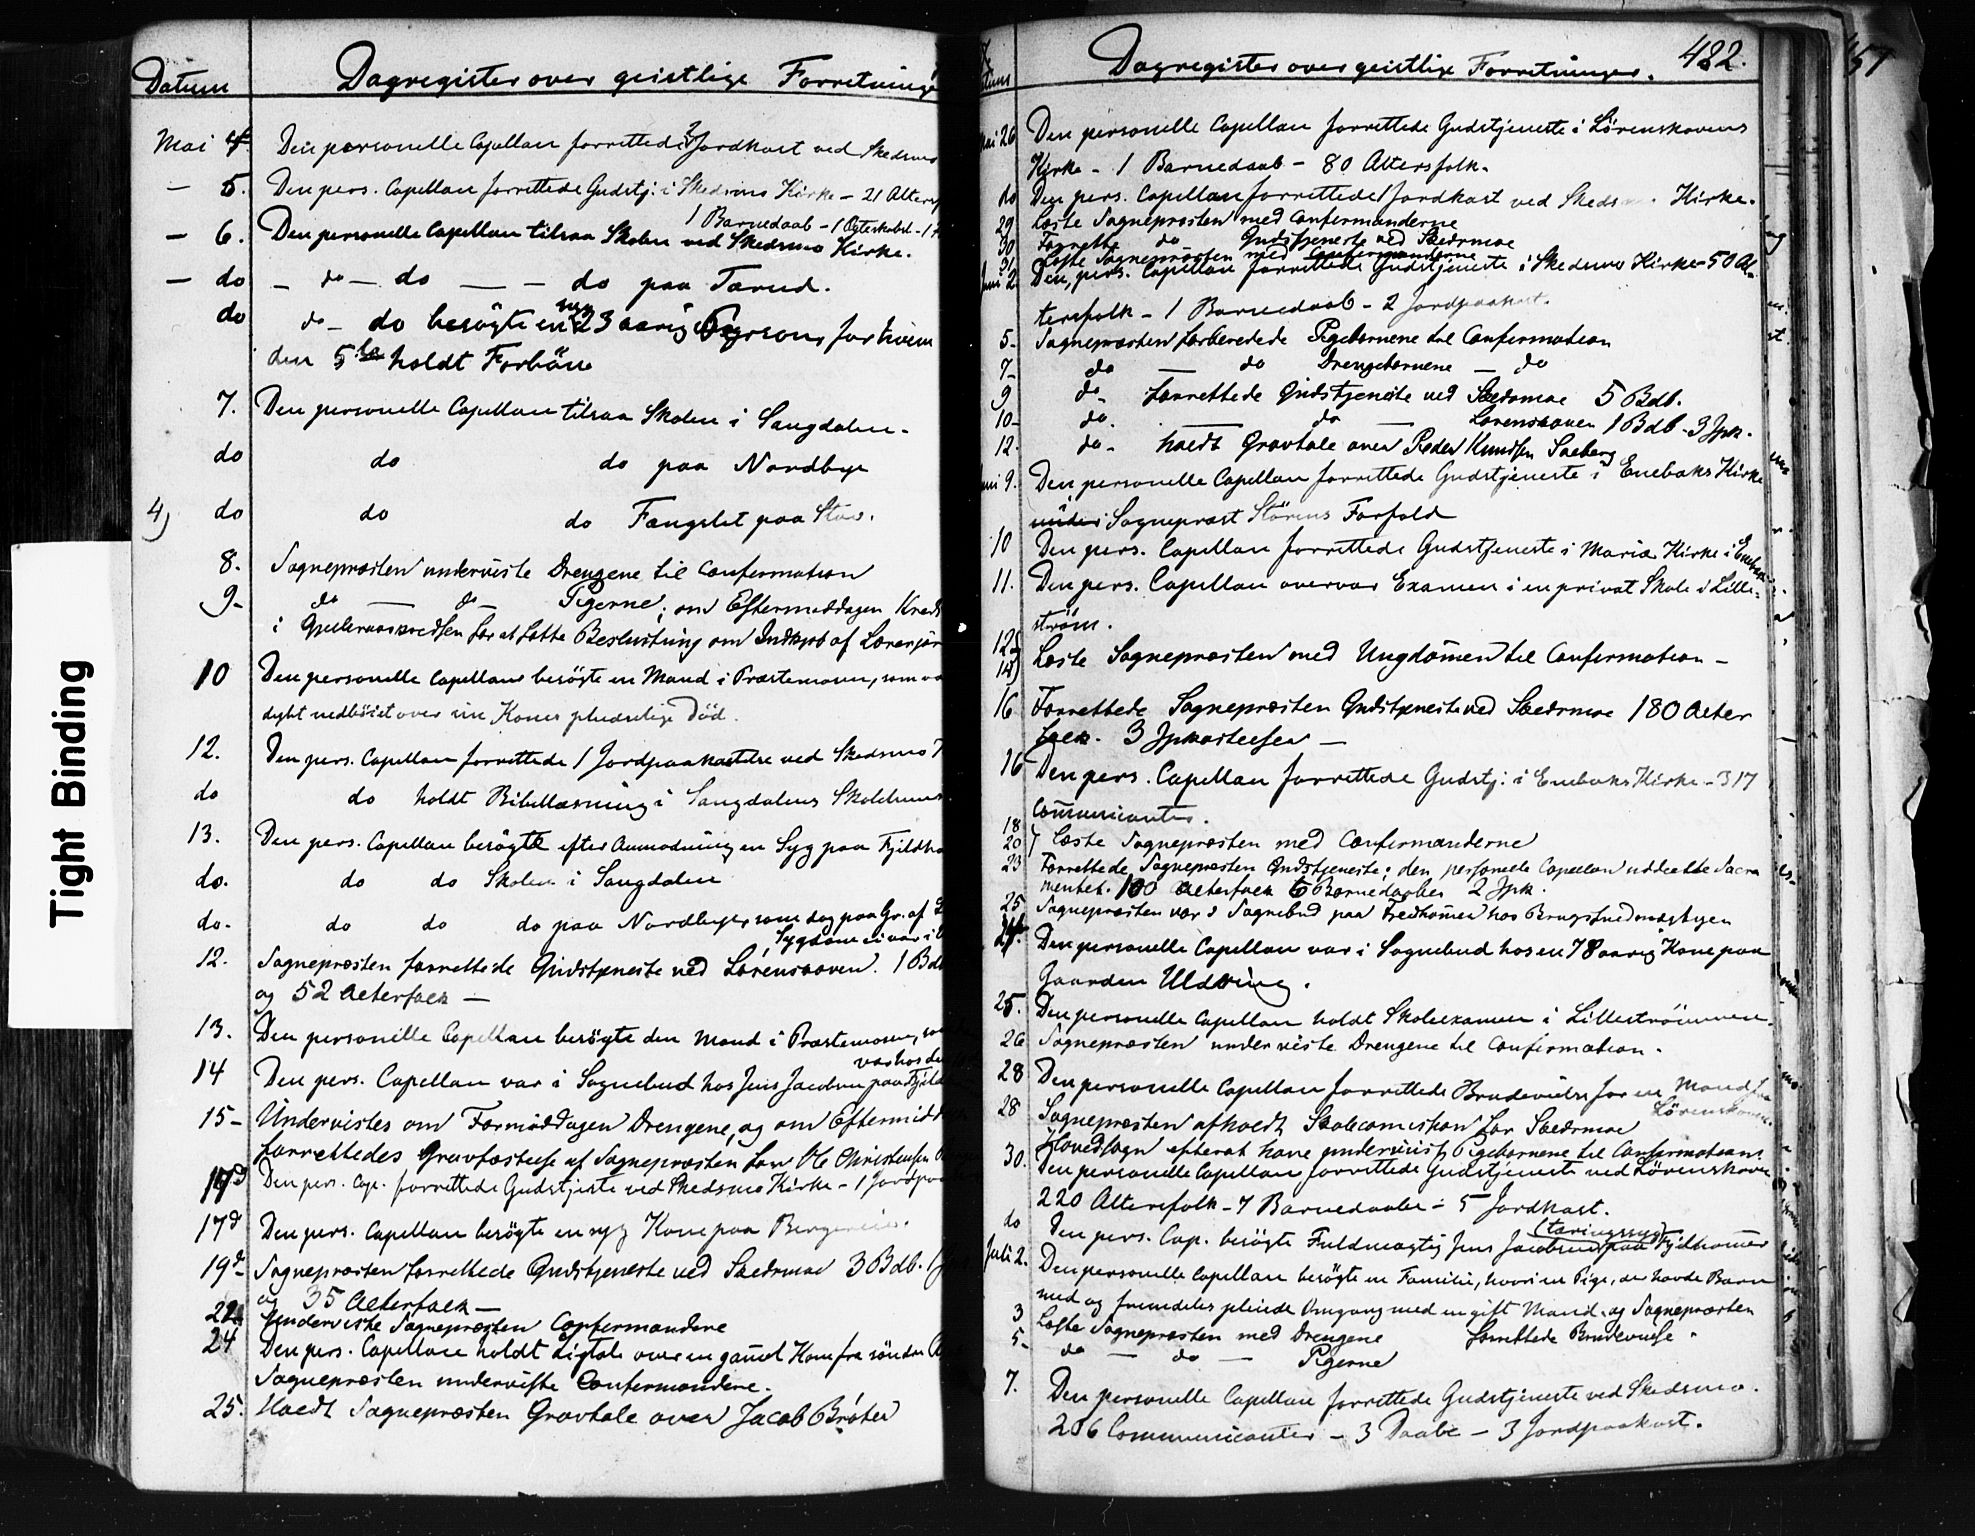 Tight Binding
Datum
Dagregister over geistlige Forretninge
Mai 4. Den personelle Capellan forrettede 3 Jordkast ved Skedsmo
— 5. Den pers. Capellan forrettede Gudstj: i Skedsmo Kirke — 21 Alters
1 Barnedaab — 1 Ægteskabsl. — 1
— 6. Den personelle Capellan tilsaa Skolen ved Skedsmo Kirke.
— do — do — do — — do paa Tærud.
do do — do besögte en syg 23 aarig Person, for hvem
den 5te holdt Forbön
7. Den personelle Capellan tilsaa Skolen i Sangdalen.
do do do paa Nordbye
4) do do do Fængslet paa
8. Sognepræsten underviste Drengene til Confirmation
9- do — do — Pigerne; om Eftermiddagen Kreds
i for at fatte Beslutning om Indkjøb af
10 Den personelle Capellan besögte en Mand i Præstemosen, som va
dybt nedböiet over sin Kones pludselige Död.
12. Den pers. Capellan forrettede 1 Jordpaakastelse ved Skedsmo
do do holdt Bibellæsning i Sangdalens Skolehuus
13. Den pers. Capellan besögte efter Anmodning en Syg paa Fjeldha
do. do do Skolen i Sangdalen
do. do do do paa Nordbye, som dog paa Gr. af
Sygdom ei var i
12. Sognepræsten forrettede Gudstjeneste ved Lørenskoven. 1 Bd
og 52 Alterfolk —
13. Den personelle Capellan besögte den Mand i Præstemosen, so
var hos de
14 Den pers. Capellan var i Sognebud hos Jens Jacobsen paa Fjeld
15- Undervistes om Formiddagen Drengene, og om Eftermidd
forrettedes Gravfæstelse af Sognepræsten for Ole Christensen
Den pers. Cap. forrettede Gudstjeste ved Skedsmo Kirke — 1 Jordpaa
17d Den pers. Capellan besögte en syg Kone paa
19d- Sognepræsten forrettede Gudstjeneste ved Skedsmoe 3 Bdb. 1
og 35 Alterfolk —
Underviste Sognepræsten Confirmandene
24 Den pers. Capellan holdt Ligtale over en gammel Kone fra söndre
Sognepræsten underviste Confirmandene.
25. Holdt Sognepræsten Gravtale over Jacob Bråter
Dagregister over geistlige Forretninger. 422.
Mai 26 Den personelle Capellan forrettede Gudstjeneste i Lørenskovens
Kirke — 1 Barnedaab — 80 Altersfolk.
do Den pers. Capellan forrettede 1 Jordkast ved Skedsmo Kirke.
29 Læste Sognepræsten med Confirmanderne
30 Forrette do Gudstjeneste ved Skedsmoe
31 Læste Sognepræsten med Confirmanderne
Juni 2. Den pers. Capellan forrettede Gudstjeneste i Skedsmo Kirke — 50 Al-
tersfolk — 1 Barnedaab — 2 Jordpaakast.
5- Sognepræsten forberedede Pigebørnene til Confirmation
7- do — do Drengebørnene — do
9 do- forrettede Gudstjeneste ved Skedsmoe 5 Bdb.
10- do. — do — Lørenskoven 1 Bdb - 3 Jpk.
12. do- holdt Gravtale over Peder Knudsen
Juni 9. Den personelle Capellan forrettede Gudstjeneste i Enebaks Kirke
under Sognepræst Störens Forfald
10 Den pers. Capellan forrettede Gudstjeneste i Mariæ Kirke i Enebak
11. Den pers. Capellan overvar Examen i en privat Skole i Lille-
ström.
12
14) Læste Sognepræsten med Ungdommen til Confirmation —
16 Forrettede Sognepræsten Gudstjeneste ved Skedsmoe 180 Alter
folk. 3 Jpkastelser —
16 Den pers. Capellan forrettede Gudstj: i Enebaks Kirke — 317
Communicanter.
18
20) Læste Sognepræsten med Confirmanderne
23 Forrettede Sognepræsten Gudstjeneste; den personele Capellan uddeelte Sacra
mentet. 100 Alterfolk 6 Barnedaaber 2 Jpk.
25 Sognepræsten var i Sognebud paa Fjedhomer hos
24. Den personelle Capellan var i Sognebud hos en 78 aarig Kone paa
Gaarden Uldving.
25. Den personelle Capellan holdt Skoleexamen i Lilleströmmen.
26 Sognepræsten underviste Drengene til Confirmation.
28 Den personelle Capellan forrettede Brudevielse for en Mand fra
Lörenskoven
28 Sognepræsten afholdt Skolecomission for Skedsmoe
Hovedsogn efterat have undervist Pigebørnene til Confirmation.
30. Den personelle Capellan forrettede Gudstjeneste ved Lörenskoven
220 Altersfolk — 7 Barnedaabe — 5 Jordkast.
(tæringssyg)
do Den pers. Cap. besögte Fuldmægtig Jens Jacobsen paa Fjeldhomer
Juli 2. Den personelle Capellan besögte en Familie, hvori en Pige, der havde Barn
med og fremdeles pleiede Omgang med en gift Mand. og Sognepræsten
forrettede Brudevielse.
3 Læste Sognepræsten med Drengene
5- do — do — Pigerne
7. Den personelle Capellan forrettede Gudstjeneste ved Skedsmo.
206 Communicanter — 3 Daabe — 3 Jordpaakast.